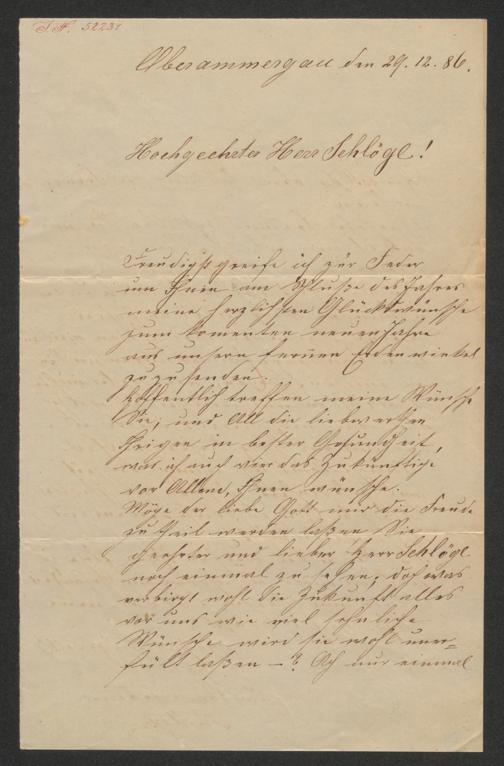 J.N. 52231
Oberammergau den 29. 12. 86.
Hochgeehrter Herr Schlögl!
Freudigst greife ich zur Feder
um Ihnen am Schluße des Jahres
meine herzlichsten Glückwünsche
zum komenten neuen Jahre
aus unsern fernen Erdenwinkel
zuzusenden.
Hoffentlich treffen meine Wünsche
Sie, und All die liebwerthen
Ihrigen in bester Gesundheit,
was ich auch für das Zukünftige
vor Allem, Ihnen wünsche.
Möge der liebe Gott mir die Freude
zu theil werden laßen Sie
geehrter und lieber Herr Schlögl
noch einmal zu sehen, doch was
verbirgt wohl die Zukunft alles
vor uns wie viel sehnliche
Wünsche wird sie wohl uner=
füllt laßen –? Ach nur einmal